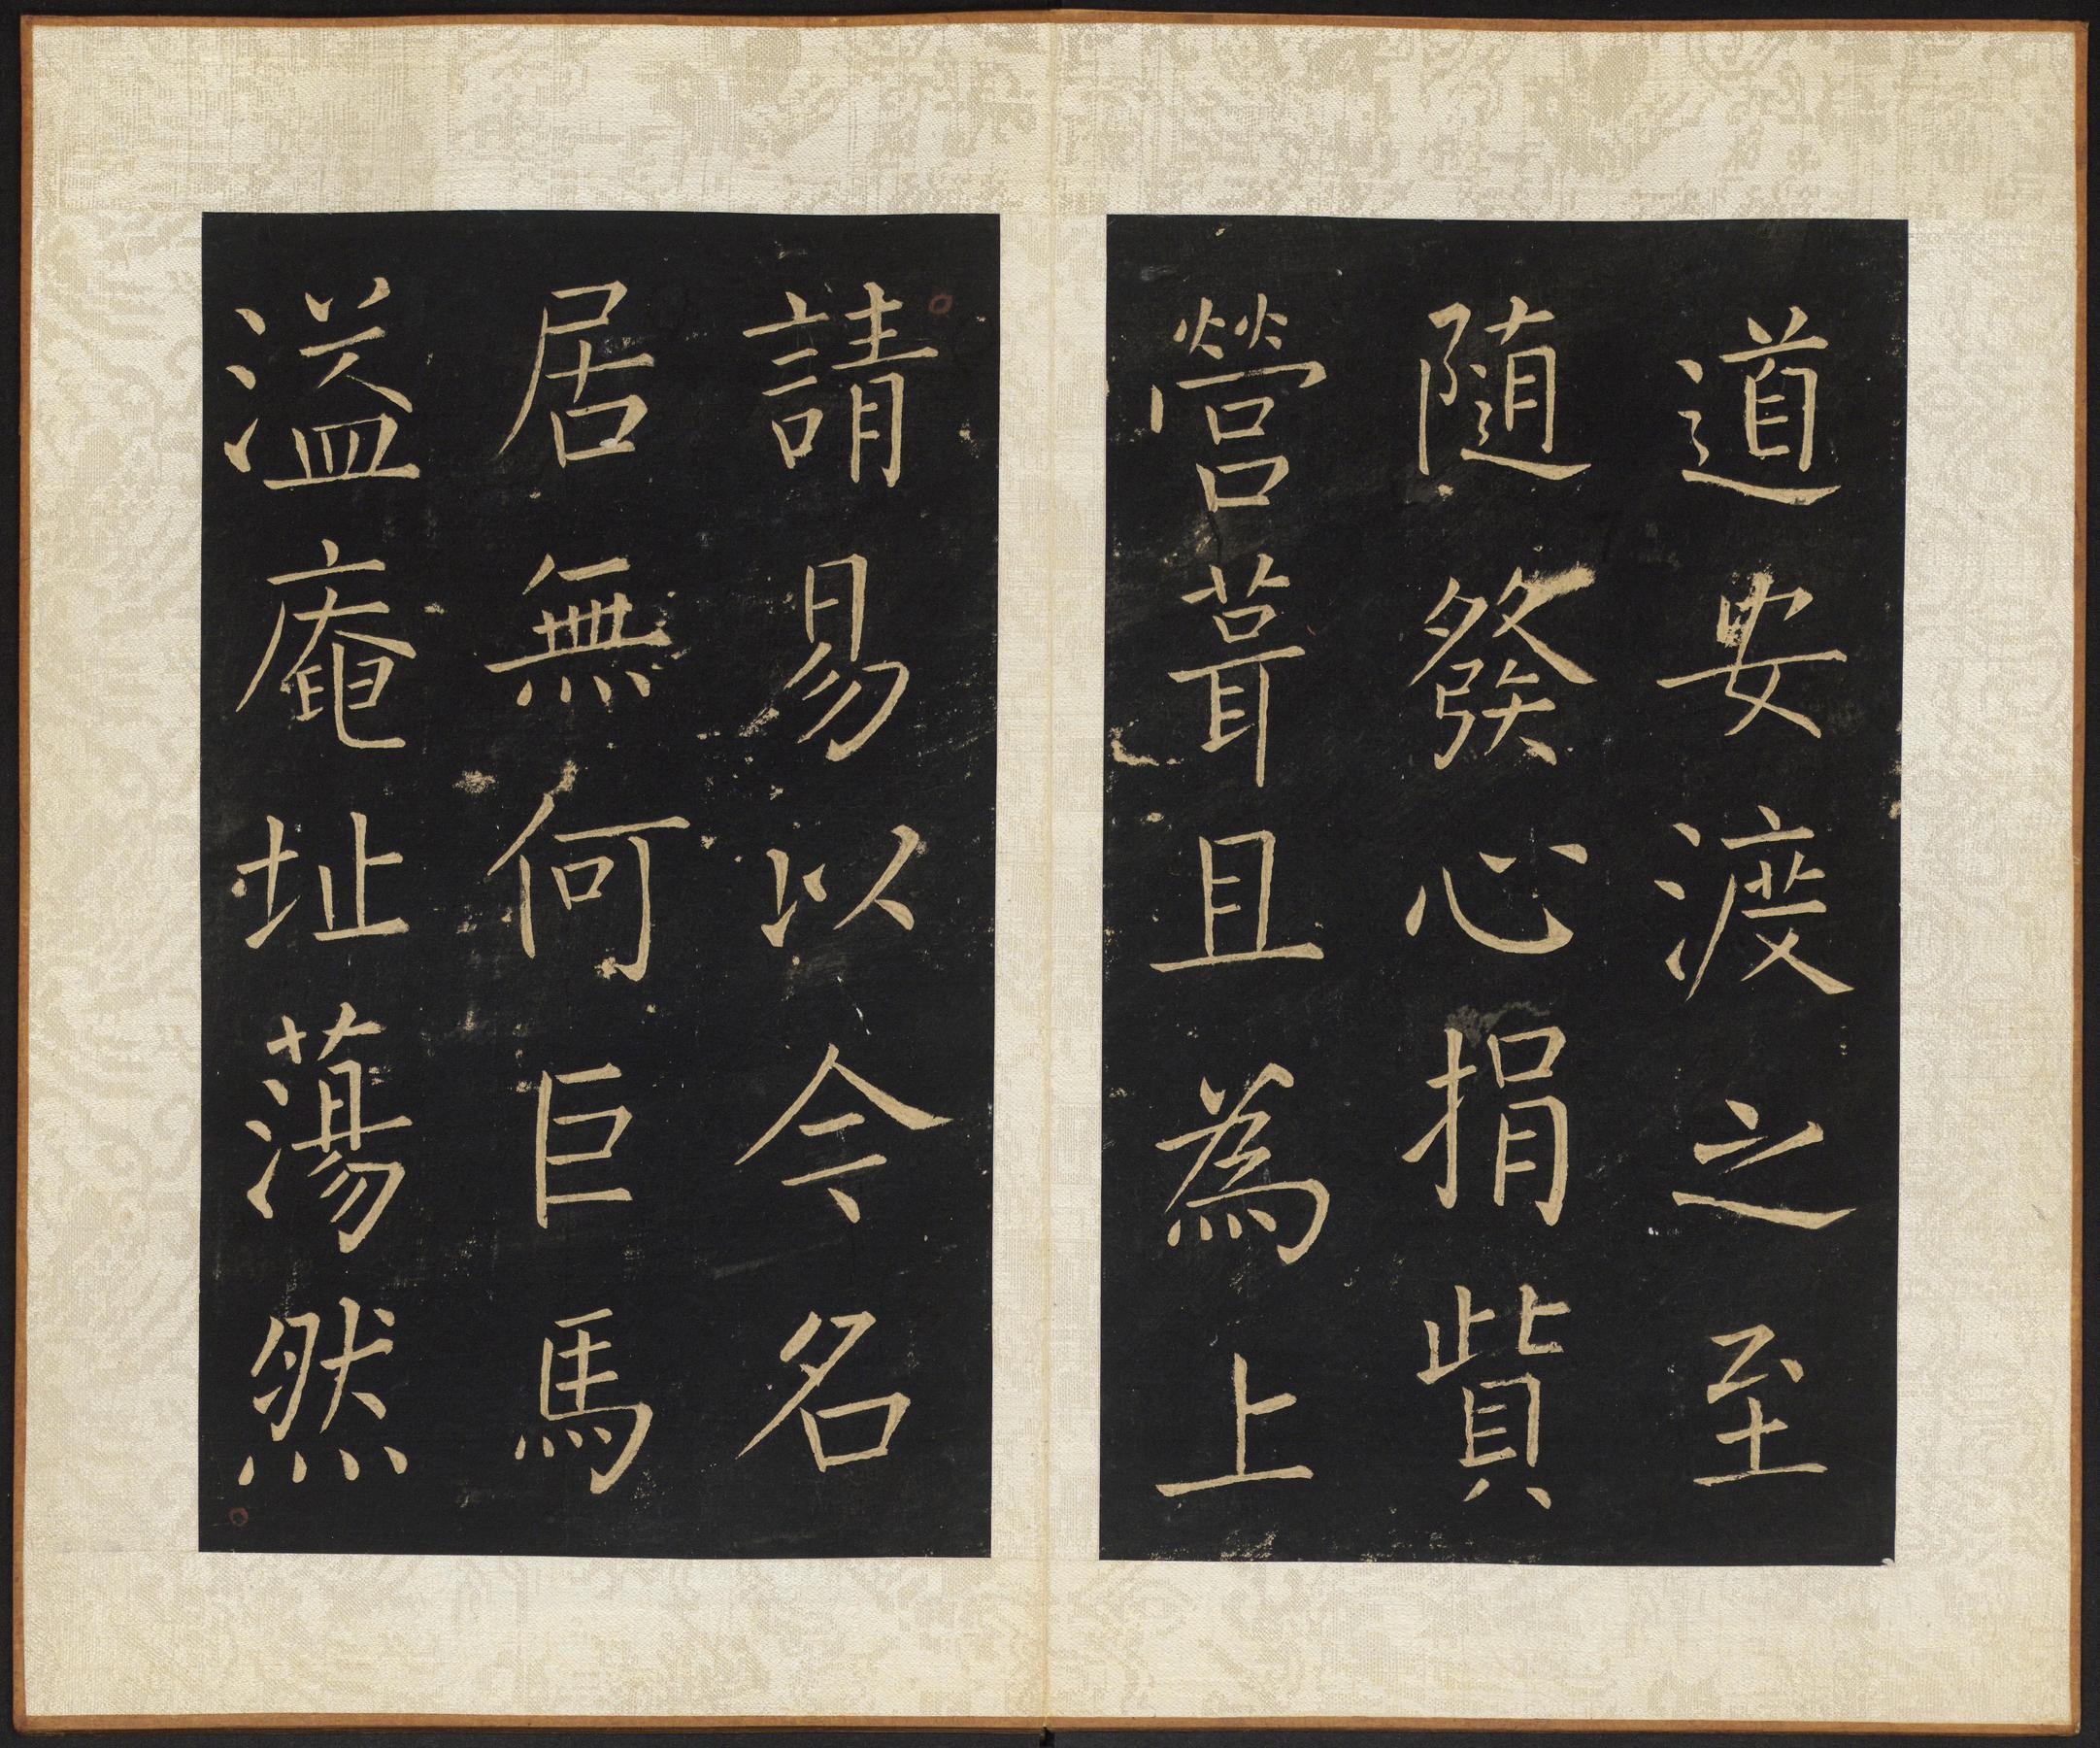 道安渡之至
随發心捐貲
營葺且為上
請易以今名
居無何巨馬
溢庵址蕩然